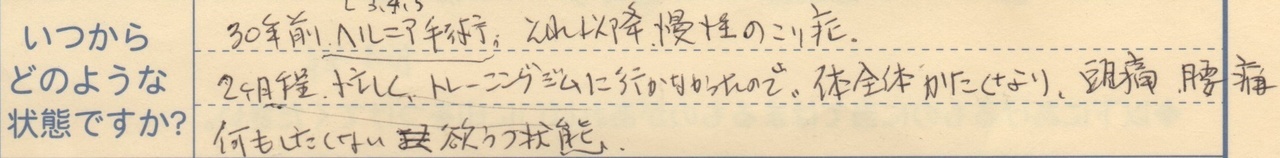 いつから
どのような
状態ですか?
L3,4,5
30年前、ヘルニア手術、それ以降、慢性のこり症。
2ヶ月程、忙しく、トレーニングジムに行かなかったので、体全体がかたくなり、頭痛、腰痛
何もしたくない 欲うつ状態、